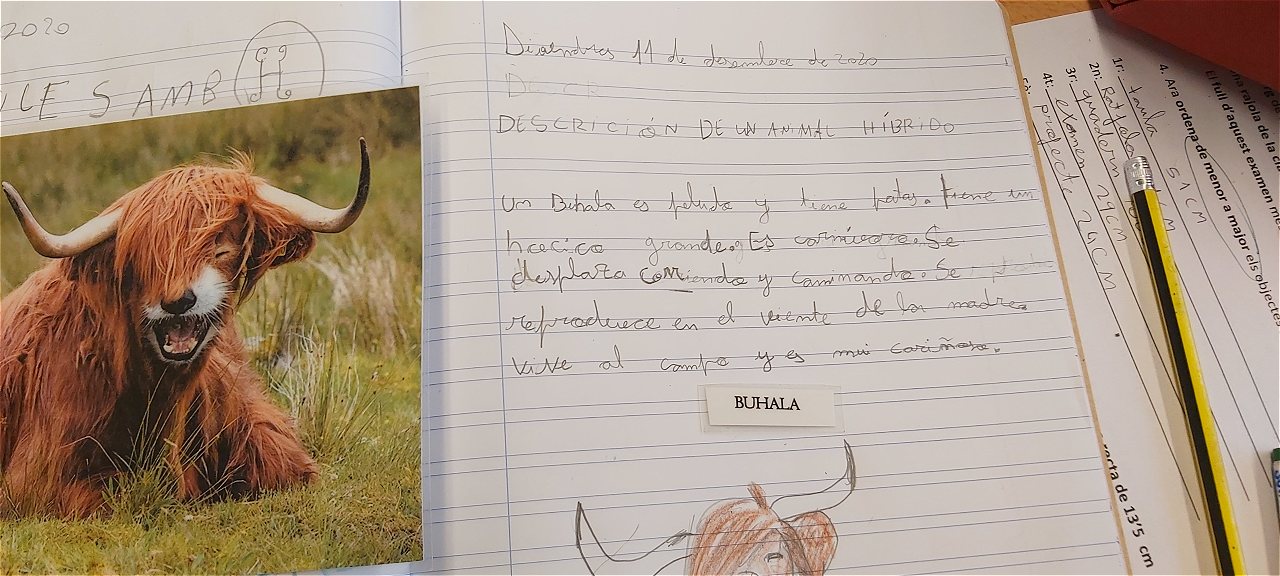 2020
ILES AMB H
Divendres 11 de desembre de 2020
DESCR
DESCRICIÓN DE UN ANIMAL HÍBRIDO
Un Buhala es peludo y tiene patas. tiene un
hocico grande. Es carnívoro. Se
desplaza comiendo y caminando. Se
reproduece en el viente de la madre.
Vive al campo y es mui cariñoso.
BUHALA
4. Ara ordena de menor a major els objectes
1r: taula 51 CM
2n: Ratola
3r: quadern 29CM
4t: examen
projecte 24CM
El full d'aquest examen
na rajola de la
recta de 13'5 cm